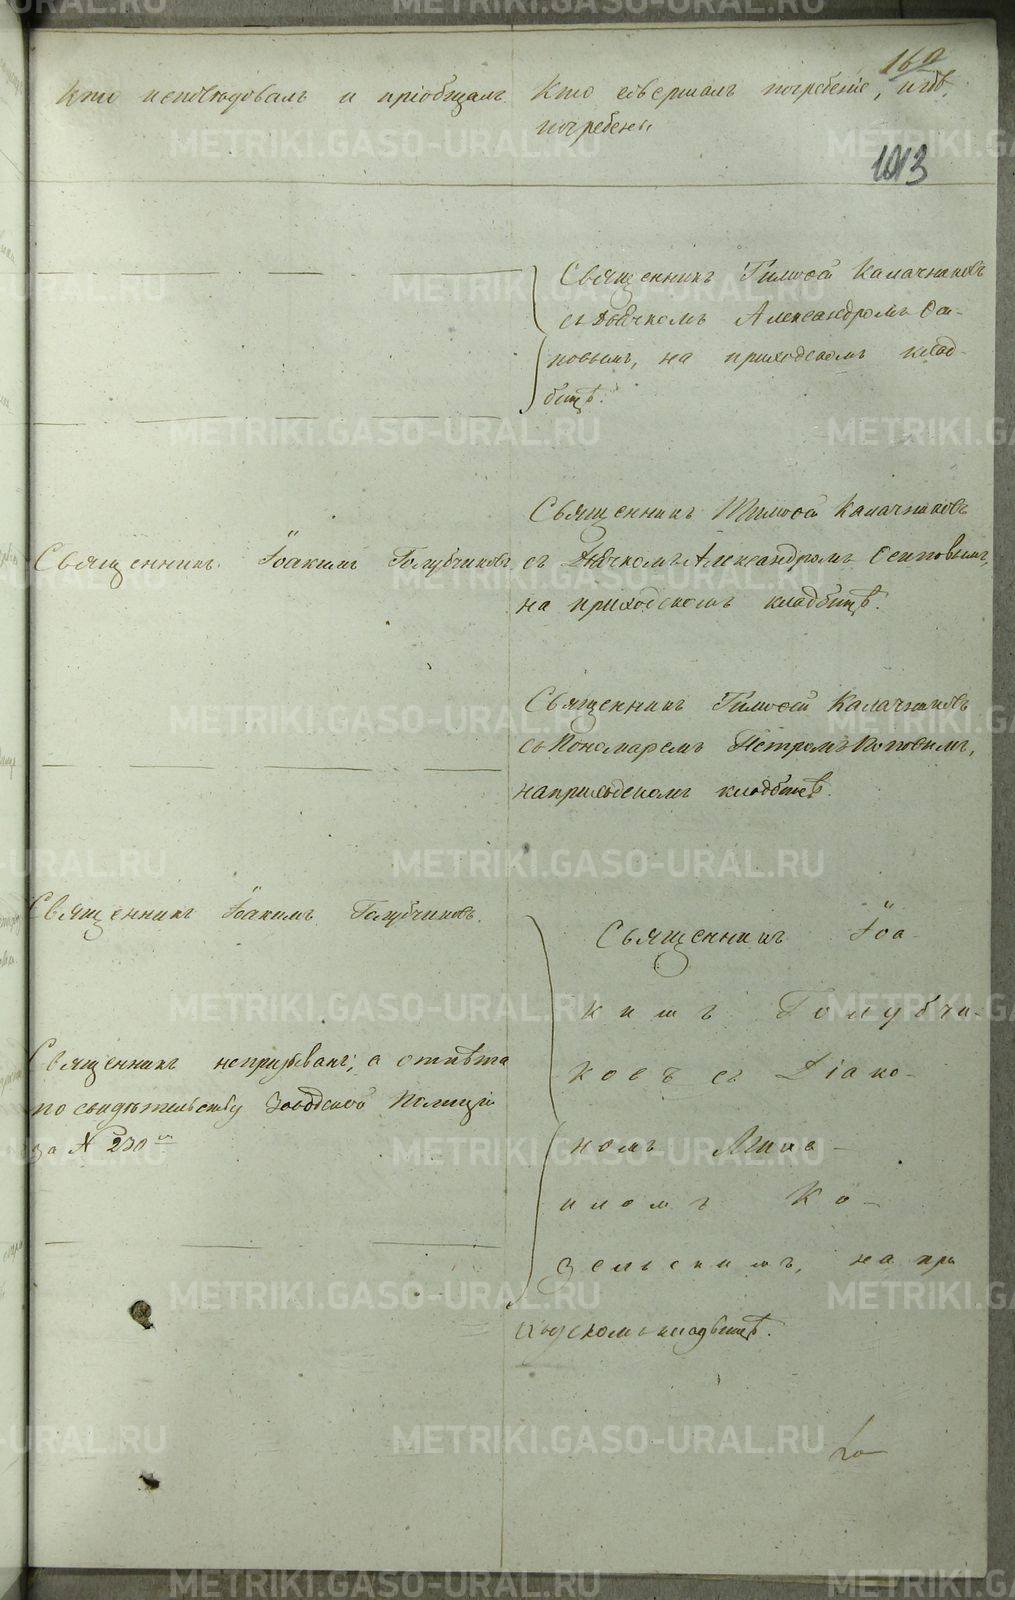 160
Кто исповѣдовалъ и пріобщалъ.
Кто совершалъ погребеніе, и гдѣ
погребены.
1013
Священникъ Тимоѳей Калачниковъ
съ Дьячкомъ Александромъ Оси-
повымъ, на приходскомъ клад-
бищѣ.
Священникъ Іоакимъ Голубчиковъ
Священникъ Тимоѳей Калачниковъ
съ Дьячкомъ Александромъ Осиповымъ,
на приходскомъ кладбищѣ.
Священникъ Тимоѳей Калачниковъ
съ Пономаремъ Петромъ Поповымъ,
на приходскомъ кладбищѣ.
Священникъ Іоакимъ Голубчиковъ.
Священникъ непризыванъ, а отпѣта
по свидѣтельству Заводской Полиціи
за № 230
Священникъ Іоа-
кимъ Голубчи-
ковъ съ Діако-
номъ
Ко-
зельскимъ, на при
ходскомъ кладбищѣ.
METRIKI.GASO-URAL.RU